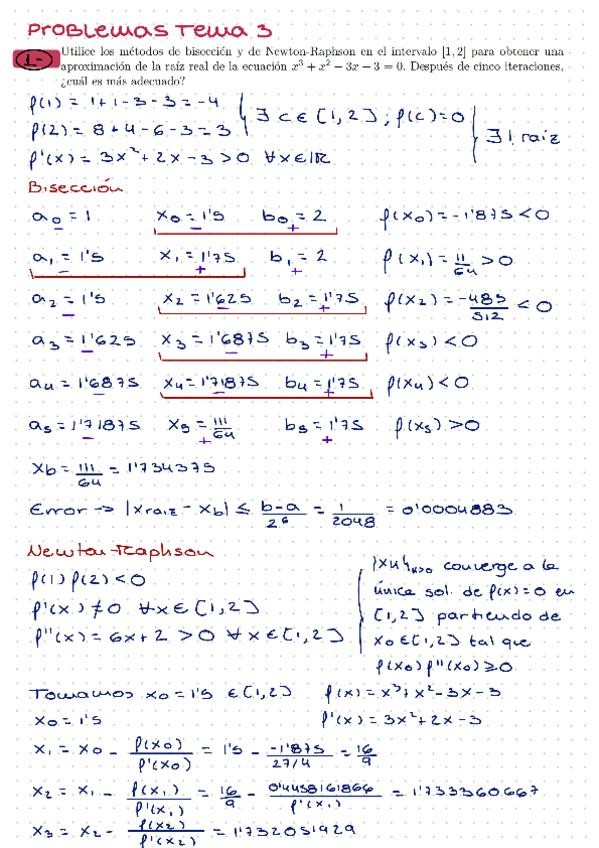 Problemas Tema 3
1.- Utilice los métodos de bisección y de Newton-Raphson en el intervalo [1, 2] para obtener una
aproximación de la raíz real de la ecuación x³ + x² − 3x − 3 = 0. Después de cinco iteraciones,
¿cuál es más adecuado?
f(1) = 1+1-3-3 = -4
f(2) = 8+4-6-3 = 3
∃ c ∈ [1,2] ; f(c)=0
f'(x) = 3x²+2x-3 > 0 ∀x∈ℝ
∃! raíz
Bisección
a₀ = 1 x₀ = 1'5 b₀ = 2 f(x₀) = -1'875 < 0
- - +
a₁ = 1'5 x₁ = 1'75 b₁ = 2 f(x₁) = 11/64 > 0
- + +
a₂ = 1'5 x₂ = 1'625 b₂ = 1'75 f(x₂) = -485/512 < 0
- - +
a₃ = 1'625 x₃ = 1'6875 b₃ = 1'75 f(x₃) < 0
- - +
a₄ = 1'6875 x₄ = 1'71875 b₄ = 1'75 f(x₄) < 0
- - +
a₅ = 1'71875 x₅ = 111/64 b₅ = 1'75 f(x₅) > 0
- + +
x_b = 111/64 = 1'734375
Error → |x raiz - x_b| ≤ b-a/2⁶ = 1/2048 = 0'0004883
Newton-Raphson
f(1) f(2) < 0
f'(x) ≠ 0 ∀x∈[1,2]
f''(x) = 6x+2 > 0 ∀x∈[1,2]
{xn}ₙ>₀ converge a la
única sol. de f(x)=0 en
[1,2] partiendo de
x₀∈[1,2] tal que
f(x₀) f''(x₀) ≥ 0
Tomamos x₀ = 1'5 ∈ [1,2] f(x) = x³+x²-3x-3
x₀ = 1'5 f'(x) = 3x²+2x-3
x₁ = x₀ - f(x₀)/f'(x₀) = 1'5 - -1'875/27/4 = 16/9
x₂ = x₁ - f(x₁)/f'(x₁) = 16/9 - 0'4458161866/f'(x₁) = 1'733360667
x₃ = x₂ - f(x₂)/f'(x₂) = 1'732051929